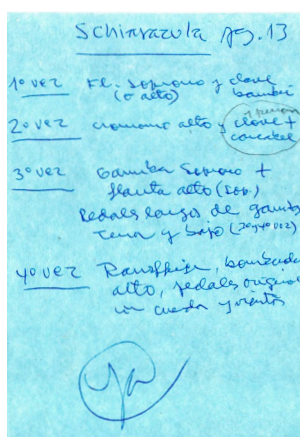 Schiarazula pg. 13
1º vez Fl. soprano y clave
(o alto)
2º vez cromorno alto y clave +
cascabel
3º vez Gamba Soprano +
flauta alto (sop.)
Pedales largos de gamba
tenor y bajo (3º y 4º vez)
4º vez Rauschpfeife, bombarda
alto, pedales original
en cuerda y vientos